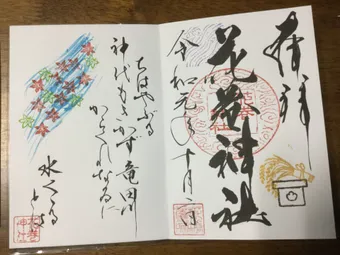 奉拝
花巻神社
令和元年十月
ちはやぶる
神代もきかず竜田川
からくれなゐに
水くくる
とは
花巻
神社